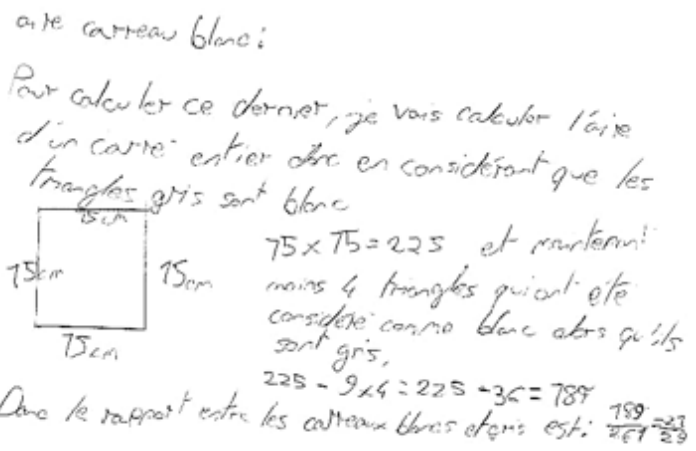 aire carreau blanc :
Pour calculer ce dernier, je vais calculer l'aire
d'un carré entier donc en considérant que les
triangles gris sont blanc
15cm
15cm
15cm
15cm
15 x 15 = 225 et maintenant
moins 4 triangles qui ont été
considéré comme blanc alors qu'ils
sont gris,
225 - 9x4 = 225 - 36 = 189
Donc le rapport entre les carreaux blancs et gris est : 189/261 = 21/29